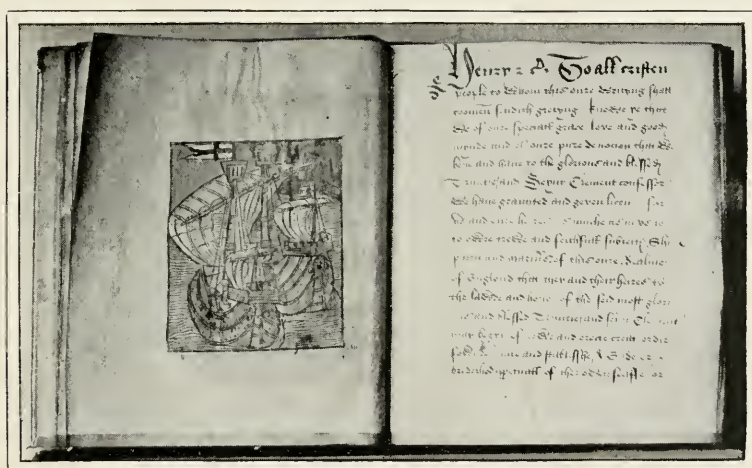 Henry &c. To all cristen
people to whom this oure writyng shall
comen sendith gretyng knowe ye that
we of oure speciall grace love and good
mynde and of oure pure devocion that we
bere and have to the glorious and blessed
Trinitie and Seynt Clement confessor
We have graunted and geven licen for
us and oure
to oure trewe and feithfull subiects Shi
pmen and mariners of this oure Realme
of Englond that they and their heires to
the lawde and honor of the seid most glori
ous and blessed Trinitie and seint Clement
may begyn of newe and erecte create ordir
found and stablisshe a Gilde or
brotherhed perpetuall of ther or